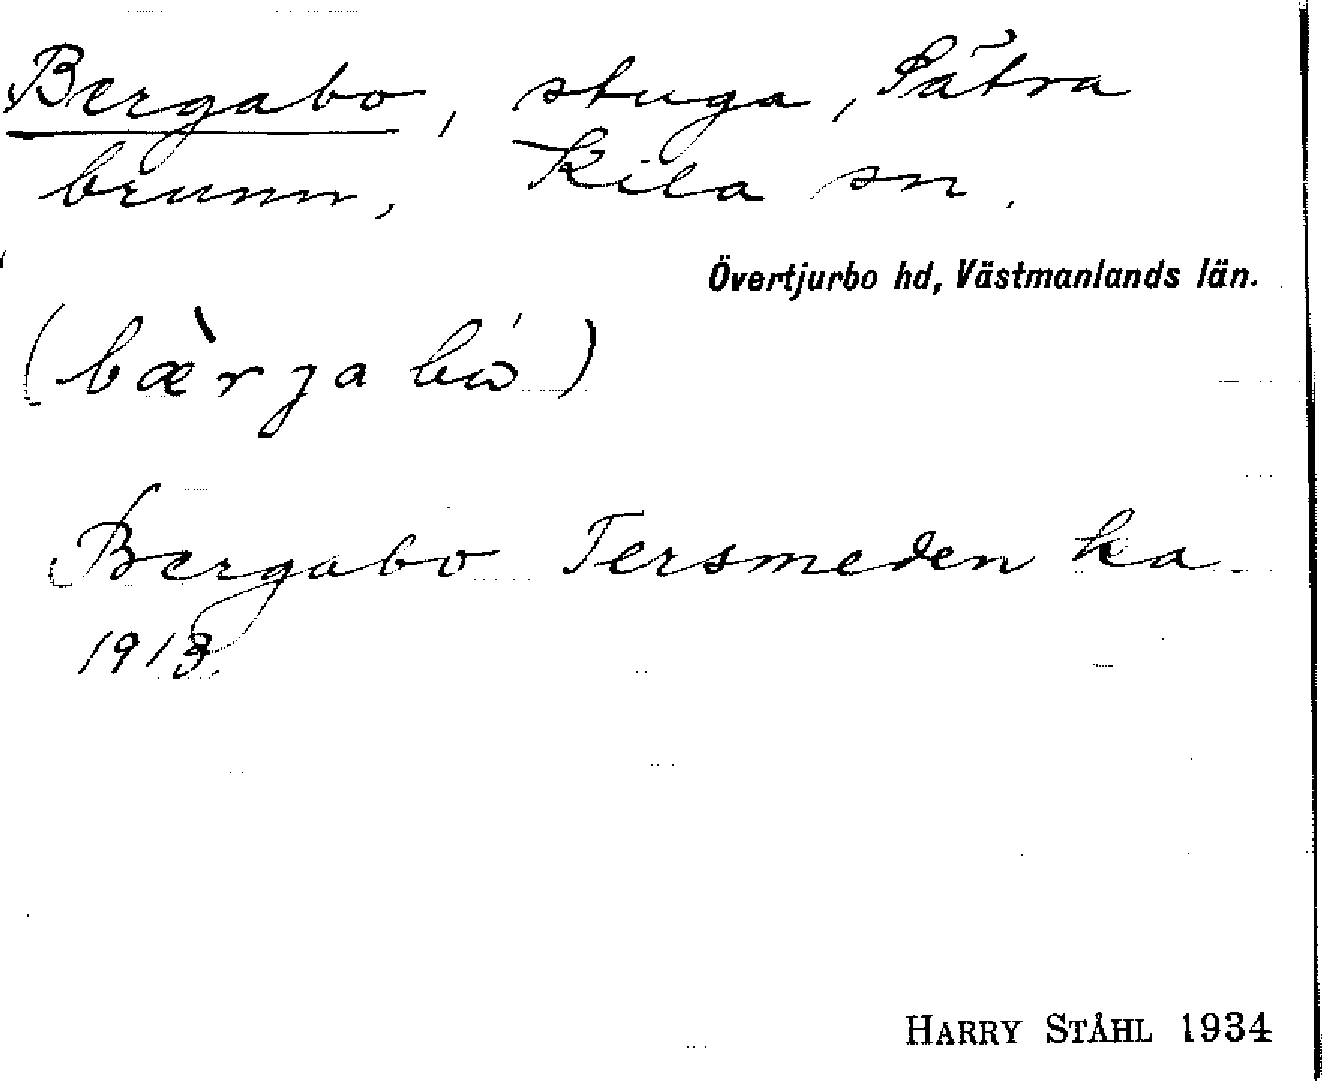 Bergabo, stuga, Sätra
brunn, Kila sn.
Övertjurbo hd, Västmanlands län.
(bæ̀rjabὼ)
Bergabo Tersmeden ka
1913.
HARRY STÅHL 1934